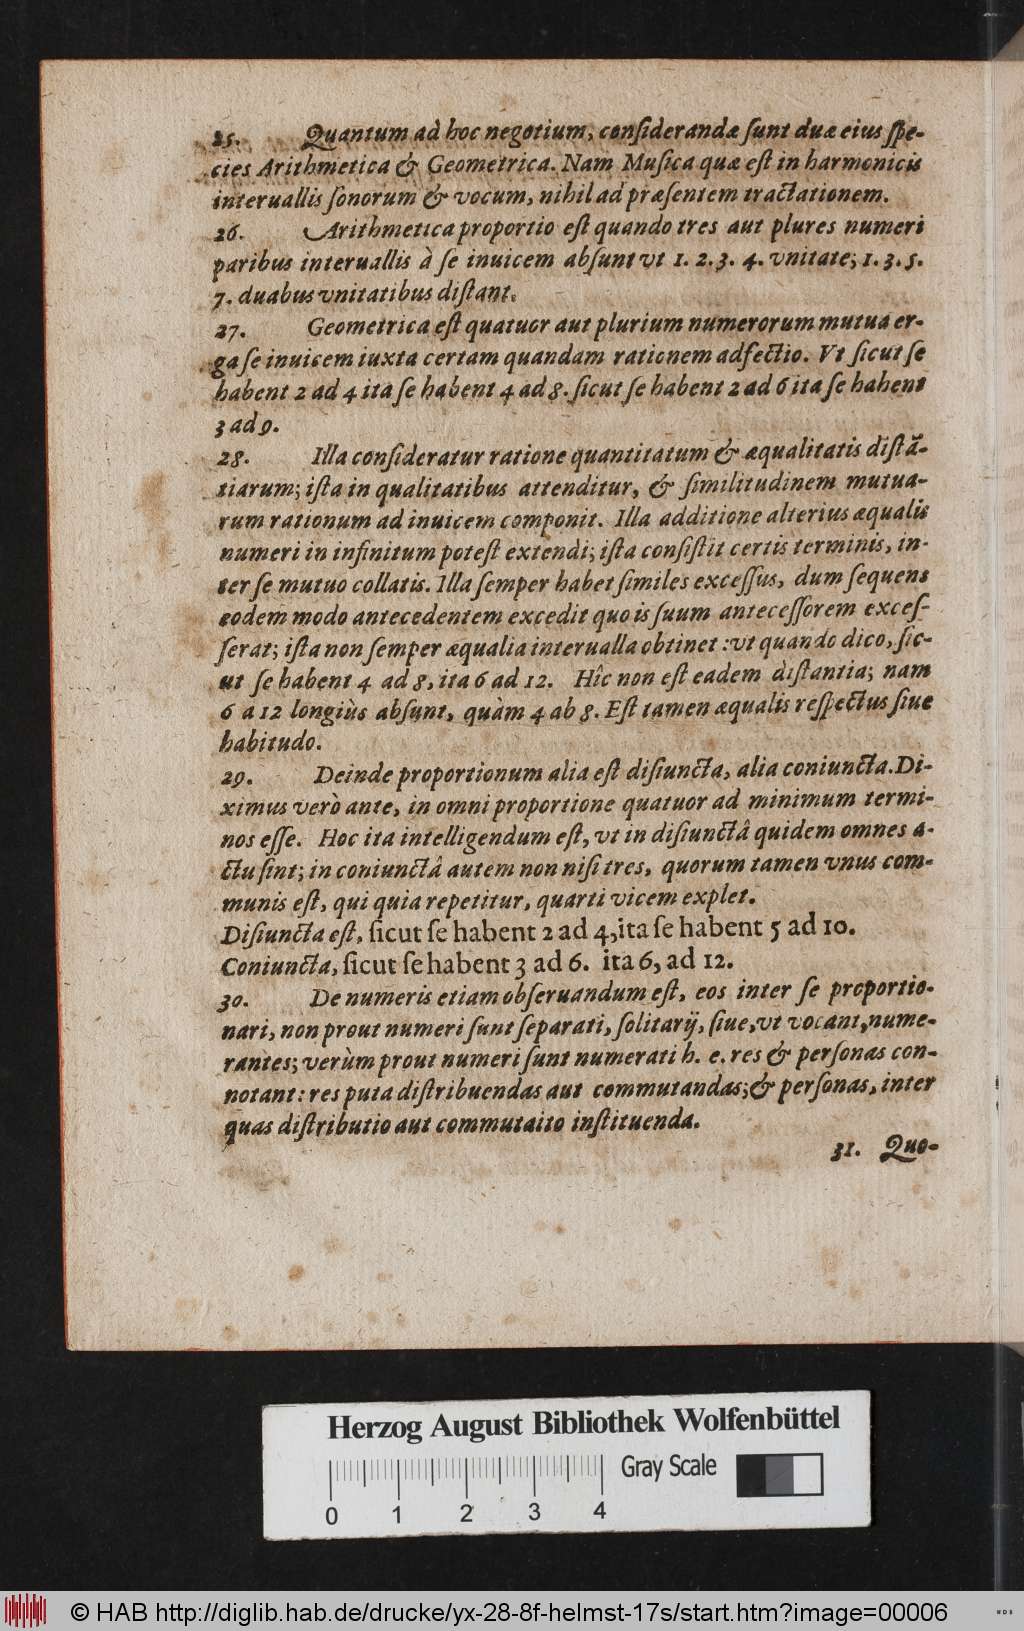 25. Quantum ad hoc negotium, conſiderandæ ſunt duæ eius ſpe-
cies Arithmetica & Geometrica. Nam Muſica quæ eſt in harmonicis
interuallis ſonorum & vocum, nihil ad præſentem tractationem.
26. Arithmetica proportio eſt quando tres aut plures numeri
paribus interuallis à ſe inuicem abſunt vt 1. 2. 3. 4. vnitate; 1. 3. 5.
7. duabus vnitatibus diſtant.
27. Geometrica eſt quatuor aut plurium numerorum mutua er-
ga ſe inuicem iuxta certam quandam rationem adfectio. Vt ſicut ſe
habent 2 ad 4 ita ſe habent 4 ad 8. ſicut ſe habent 2 ad 6 ita ſe habent
3 ad 9.
28. Illa conſideratur ratione quantitatum & æqualitatis diſtā-
tiarum; iſta in qualitatibus attenditur, & ſimilitudinem mutua-
rum rationum ad inuicem componit. Illa additione alterius æqualis
numeri in infinitum poteſt extendi; iſta conſiſtit certis terminis, in-
ter ſe mutuo collatis. Illa ſemper habet ſimiles exceſſus, dum ſequens
eodem modo antecedentem excedit quo is ſuum anteceſſorem exceſ-
ſerat; iſta non ſemper æqualia interualla obtinet : vt quando dico, ſic-
ut ſe habent 4 ad 8, ita 6 ad 12. Hîc non eſt eadem diſtantia; nam
6 a 12 longiùs abſunt, quàm 4 ab 8. Eſt tamen æqualis reſpectus ſiue
habitudo.
29. Deinde proportionum alia eſt diſiuncta, alia coniuncta. Di-
ximus verò ante, in omni proportione quatuor ad minimum termi-
nos eſſe. Hoc ita intelligendum eſt, vt in diſiunctâ quidem omnes a-
ctu ſint; in coniunctâ autem non niſi tres, quorum tamen vnus com-
munis eſt, qui quia repetitur, quarti vicem explet.
Diſiuncta eſt, ſicut ſe habent 2 ad 4, ita ſe habent 5 ad 10.
Coniuncta, ſicut ſe habent 3 ad 6. ita 6, ad 12.
30. De numeris etiam obſeruandum eſt, eos inter ſe proportio-
nari, non prout numeri ſunt ſeparati, ſolitarij, ſiue, vt vocant, nume-
rantes; verùm prout numeri ſunt numerati h. e. res & perſonas con-
notant: res puta diſtribuendas aut commutandas; & perſonas, inter
quas diſtributio aut commutaito inſtituenda.
31. Quo-
Herzog August Bibliothek Wolfenbüttel
Gray Scale
0 1 2 3 4
© HAB http://diglib.hab.de/drucke/yx-28-8f-helmst-17s/start.htm?image=00006